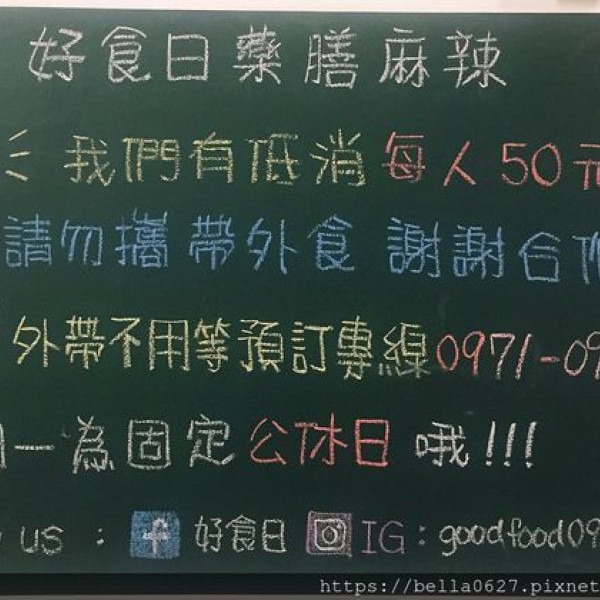 好食日藥膳麻辣
我們有低消每人50元
請勿攜帶外食 謝謝合作
外帶不用等預訂專線0971-09
一為固定公休日哦!!!
us : f 好食日 IG : goodfood09
https://bella0627.pixnet